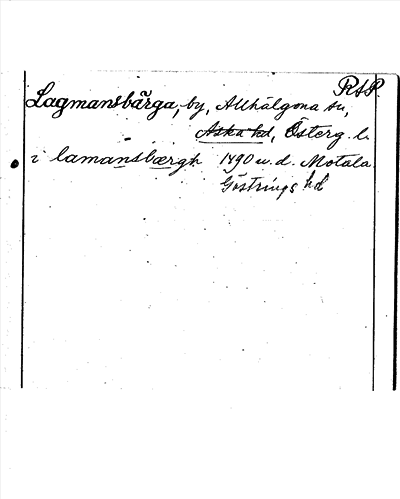 RAP.
Lagmansbärga, by, Allhälgona sn,
Aska hd, Österg. l.
i lamansbærgh 1490 u. d. Motala.
Göstrings hd